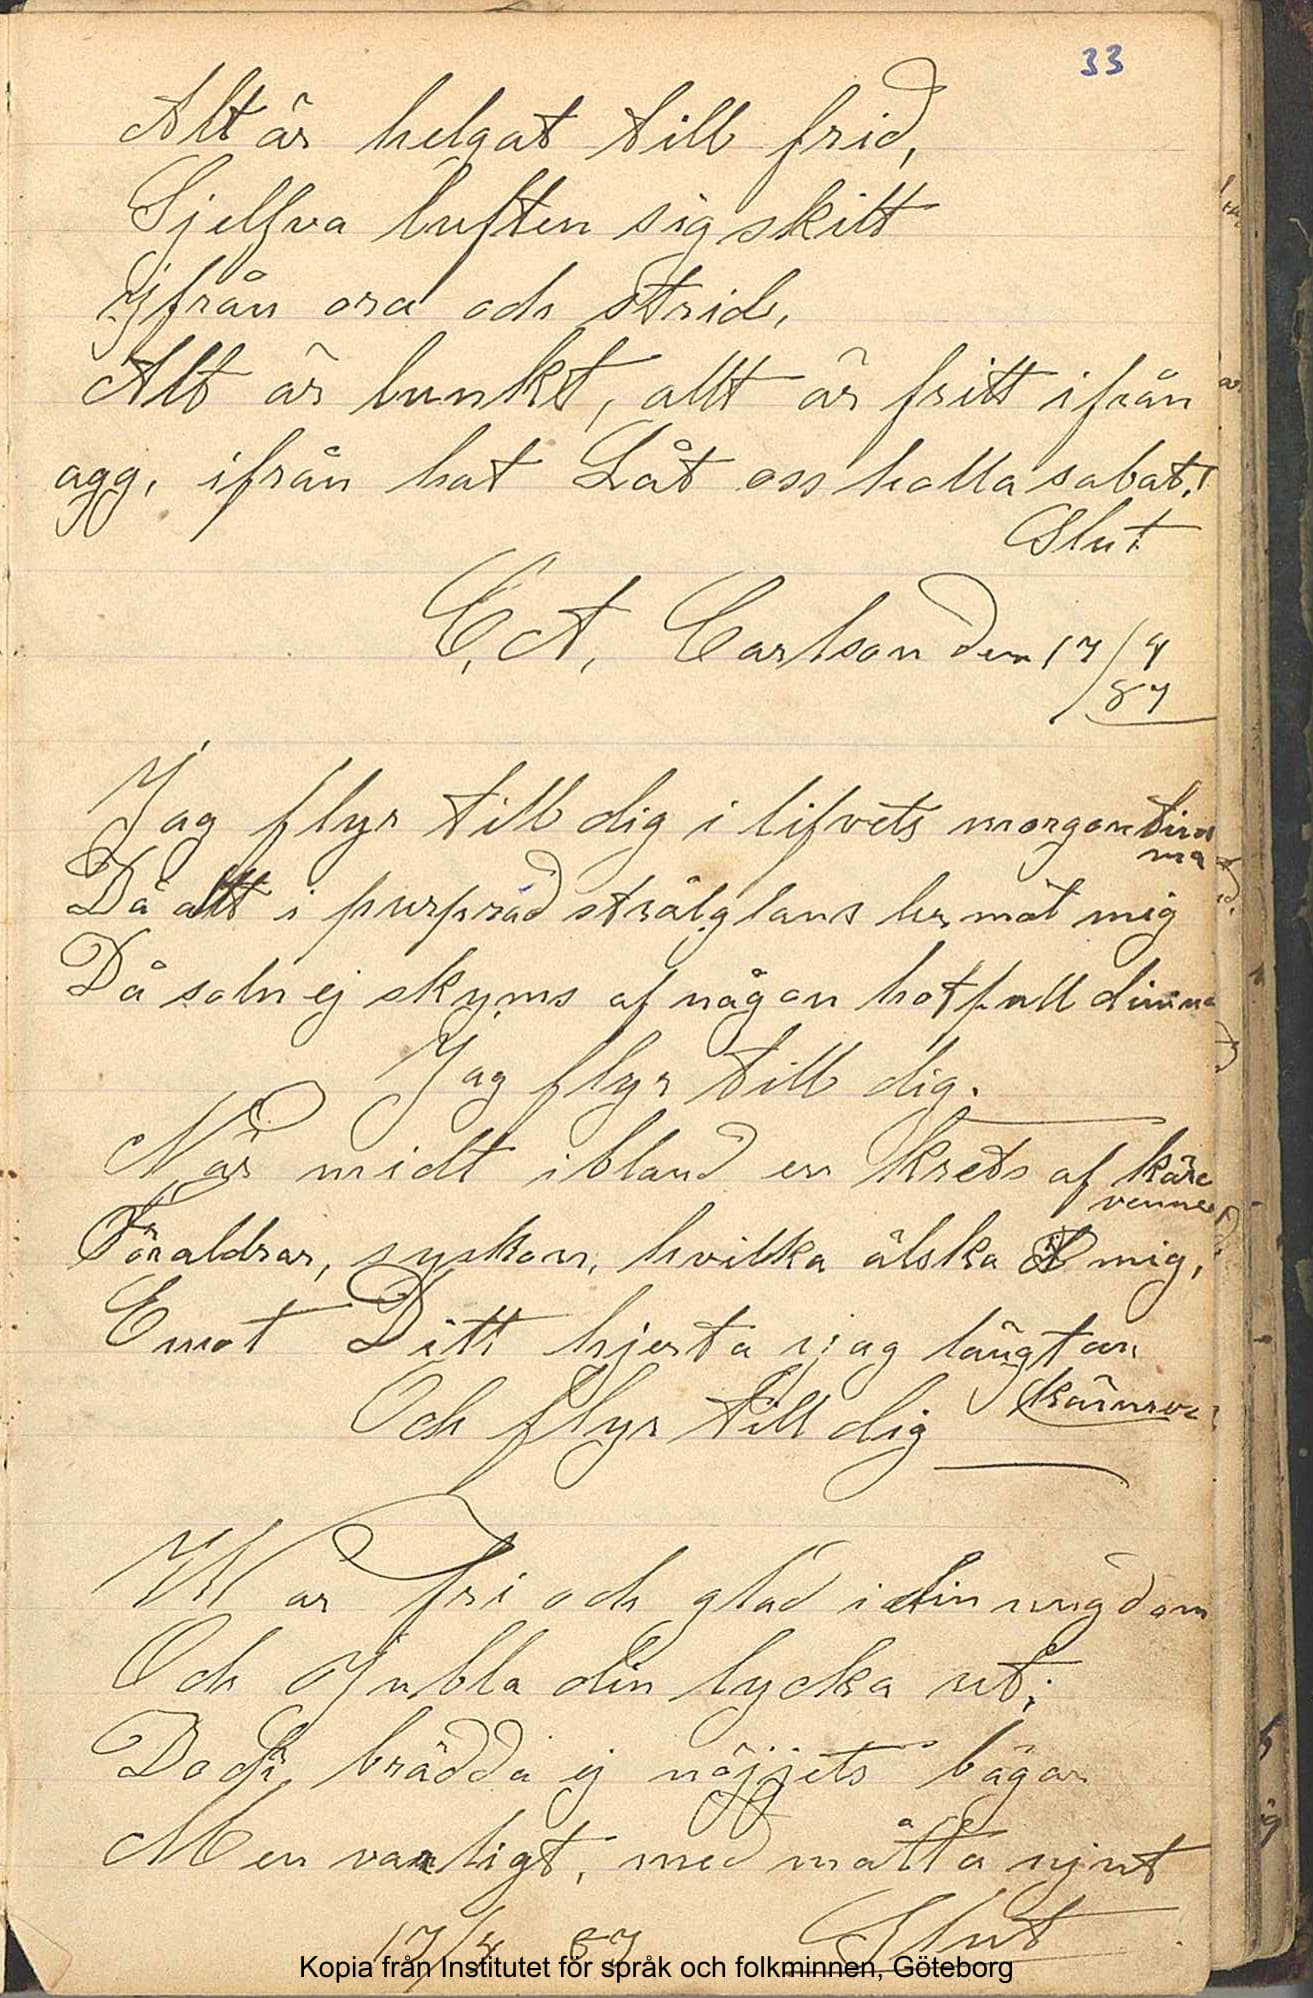 33
Alt är helgat till frid,
Sjelfva luften sig skilt
Ifrån oro och strid,
Alt är lunkt, allt är fritt ifrån
agg, ifrån hat Låt oss hålla sabat!
Slut
C, A, Carlson den 17/4
87
Jag flyr till dig i lifvets morgontim
ma
Då allt i purpråd strålglans ler mot mig
Då soln ej skyms af någon hotfull dimma
Jag flyr till dig.
När midt ibland en krets af kära
vänner
Föräldrar, syskon, hvilka älska mig,
Emot Ditt hjerta jag längtan
känner
Och flyr till dig
War fri och glad i din ungdom
Och Jubla din lycka ut;
Dock brädda ej nöjjets bägar
Men varligt, med måtta njut
17/4 87 Slut
Kopia från Institutet för språk och folkminnen, Göteborg